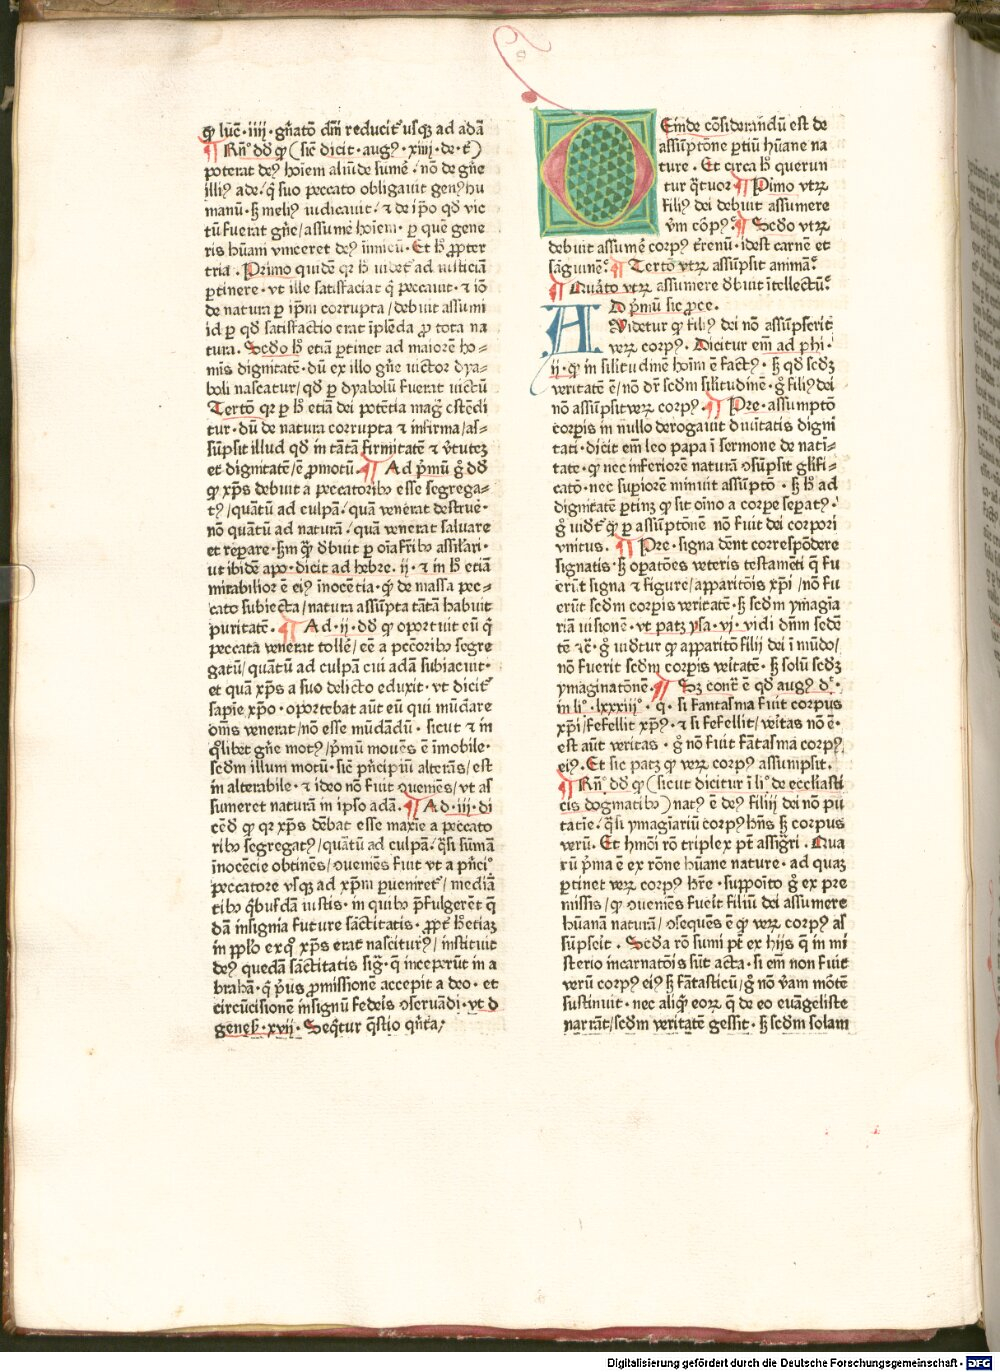 ꝙ luc̄·iiii·gn̄ato᷒ dn̄i reducit᷒ usqꝫ ad adā
¶ Rn̄º dd̄ ꝙ (sic̄ dicit·augꝰ·xiiij·de·t̄)
poterat deꝰ hoīem aliūde sumē/nō de gn̄e
illiꝰ ade/q̄ suo peccato obligauit genꝰ hu
manū·ꝫ meliꝰ iudicauit/⁊ de ip̄o qd̄ vic
tū fuerat gn̄e/assumē hoīem·ꝑ quē gene
ris hūani vinceret deꝰ īimicū·Et h̄ ꝓpter
tria·Primo quidē qr h̄ uidet᷒ ad iusticiā
ꝑtinere·vt ille satisfaciat q̄ peccauit·⁊ iō
de natura ꝑ ip̄m corrupta/debuit assumi
id ꝑ qd̄ satisfactio erat īplēda ꝓ tota na
tura·Secd̄o h̄ etiā ꝑtinet ad maiorē ho=
mis dignitatē·dū ex illo gn̄e uictor dya=
boli nascatur/qd̄ ꝑ dyabolū fuerat uictū
Tertō qr ꝑ h̄ etiā dei potētia magꝭ oſtēdi
tur·dū de natura corrupta ⁊ infirma/as=
sūpsit illud qd̄ in tātā firmitatē ⁊ v̄tutēꝫ
et dignitatē/ē ꝓmotū·¶ Ad pmū gͦ dd̄
ꝙ xp̄s debuit a peccatoribꝰ esse segrega=
tꝰ/quātū ad culpā/quā venerat destruē·
nō quātū ad naturā/quā venerat saluare
et reꝑare·ẜm quā dbuit ꝑ oīa fr̄ibꝰ assil̄ari·
ut ibidē apo·dicit ad hebre·ij·⁊ in h̄ etiā
mirabilior ē eiꝰ īnocētia·qꝭ de massa pec=
cato subiecta/natura assūpta tātā habuit
puritatē·¶ Ad·ij·dd̄ ꝙ oportuit eū q̄
peccata venerat tollē/eē a pec̄oribꝰ segre
gatū/quātū ad culpā cui adā subiacuit·
et quā xp̄s a suo delicto eduxit·vt dicit᷒
sapie xp̄o·oportebat aūt eū qui mūdare
om̄s venerat/nō esse mūdādū·sicut ⁊ in
qͦlibet gn̄e motꝰ/pmū mouēs ē īmobile·
secd̄m illum motū·sic̄ pncipiū alterās/est
in alterabile·⁊ ideo nō fuit ꝯueniēs/vt as
sumeret naturā in ipso adā·¶ Ad·iij·di
cēd̄ ꝙ qr xp̄s dēbat esse maxīe a peccato
ribꝰ segregatꝰ/quātū ad culpā/q̄si sūmā
īnocēcie obtinēs/ꝯueniēs fuit vt a pn̄ciº
peccatore vsqꝫ ad xp̄m ꝑueniret᷒/mediā
tibꝰ q̄busdā iustis·in quibꝰ p̄fulgerēt q̄
dā insignia future sāctitatis·ꝓpt h̄ etiaꝫ
in pplō ex qͦ xp̄s erat nasciturꝰ/instituit
deꝰ quedā sāctitatis sig·q̄ inceperūt in a
brahā·q̄ p̄us ꝓmissionē accepit a deo·et
circūcisionē insignū fedeis ꝯseruādi·vt d
genes·xvij·Seq̄tur q̄stio qn̄ta/
Einde cōsiderandū est de
assūptōne ꝑtiū hūane na
ture·Et circa h̄ querun
tur q̄tuor ¶ Pimo vtꝝ
filiꝰ dei debuit assumere
v̄m corpꝰ·¶ Secd̄o vtꝝ
debuit assumē corpꝰ trenū·idest carnē et
sāguinē·¶ Tertō vtꝝ assūpsit animā·
¶ Quāto vtꝝ assumere dbuit itellectū·
AD pmū sic ꝓce·
Videtur ꝙ filiꝰ dei nō assūpserit
verꝝ corpꝰ·Dicitur em̄ ad phi·
ij·ꝙ in silitudinē hoīm ē factꝰ·ꝫ qd̄ secd̄ꝫ
veritatē ē/nō dr̄ secd̄m silitudinē·gͦ filiꝰ dei
nō assūpsit verꝝ corpꝰ·¶ Pre·assumptō
corꝑis in nullo derogauit diuītatis digni
tati·dicit em̄ leo papa ī sermone de nati=
tate·ꝙ nec inferiorē naturā ꝯsūpsit glifi=
catō·nec suꝑiorē minuit assūptō·ꝫ h̄ ad
dignitatē ꝑtinꝫ ꝙ sit oīno a corꝑe sepatꝰ·
gͦ uidt᷒ ꝙ ꝑ assūptōnē nō fuit dei corpori
vnitus·¶ Pre·signa dent correspōdere
signatis·ꝫ oꝑatōes veteris testamēti q̄ fu
erūt signa ⁊ figure/apparitōis xp̄i/nō fu
erūt secd̄m corꝑis veritatē·ꝫ secd̄m ymagīa
riā uisionē·vt patꝫ ysa·vj·vidi dn̄m sedē
tē ⁊c̄·gͦ uidtur ꝙ apparitō filij dei ī mūdo/
nō fuerit secd̄m corꝑis veritatē·ꝫ solū secd̄ꝫ
ymaginatōnē·¶ Sꝫ contͣ ē qd̄ augꝰ dt·
in liº·lxxxiijº·q·si fantasma fuit corpus
xp̄i/fefellit xp̄ꝰ·⁊ si fefellit/veritas nō ē·
est aūt veritas·gͦ nō fuit fātasma corpꝰ
eiꝰ·Et sic patꝫ ꝙ verꝝ corpꝰ assumpsit·
¶ Rn̄º dd̄ ꝙ (sicut dicitur ī liº de ecclasti
cis dogmatibꝰ) natꝰ ē deꝰ filiꝰ dei nō pu
tatīe/q̄si ymagīariū corpꝰ hn̄s ꝫ corpus
verū·Et hmōi rō triplex pt̄ assig̃ri·Qua
rū pma ē ex rōne hūane nature·ad quaꝫ
ꝑtinet verꝝ corpꝰ hre·suppoīto gͦ ex pre
missis/ꝙ ꝯueniēs fuerit filiū dei assumere
hūanā naturā/ꝯsequēs ē ꝙ verꝝ corpꝰ as
sūpserit·Secd̄a rō sumi pt̄ ex hijs q̄ in mi
sterio incarnatōis sūt acta·si em̄ non fuit
verū corpꝰ eiꝰ ꝫ fātasticū/gͦ nō v̄am mōtē
sustinuit·nec aliqͥ eoꝝ q̄ de eo euāgeliste
narrāt/secd̄m veritatē gessit·ꝫ secd̄m solam
Digitalisierung gefördert durch die Deutsche Forschungsgemeinschaft · DFG